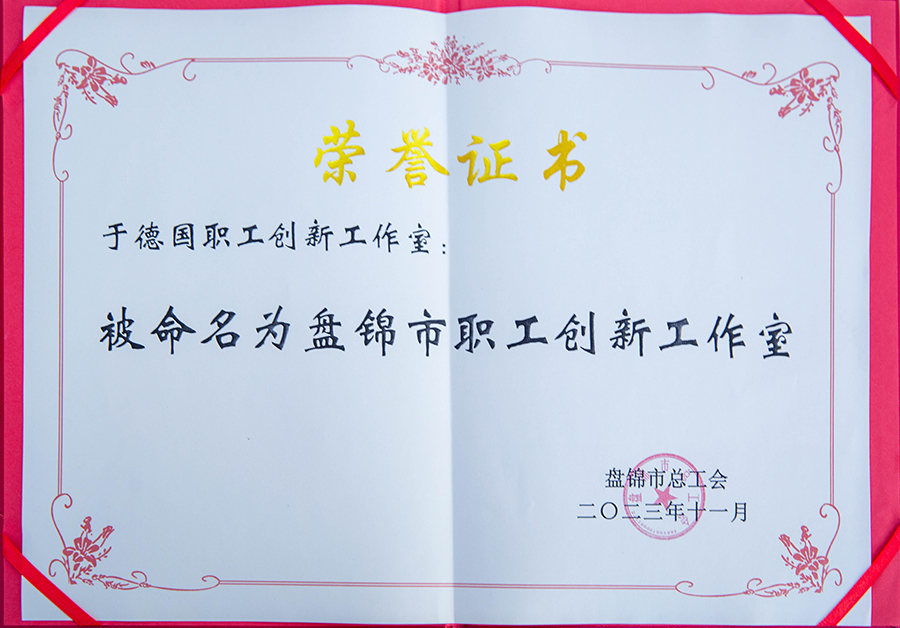 荣誉证书
于德国职工创新工作室：
被命名为盘锦市职工创新工作室
盘锦市总工会
二〇二三年十一月